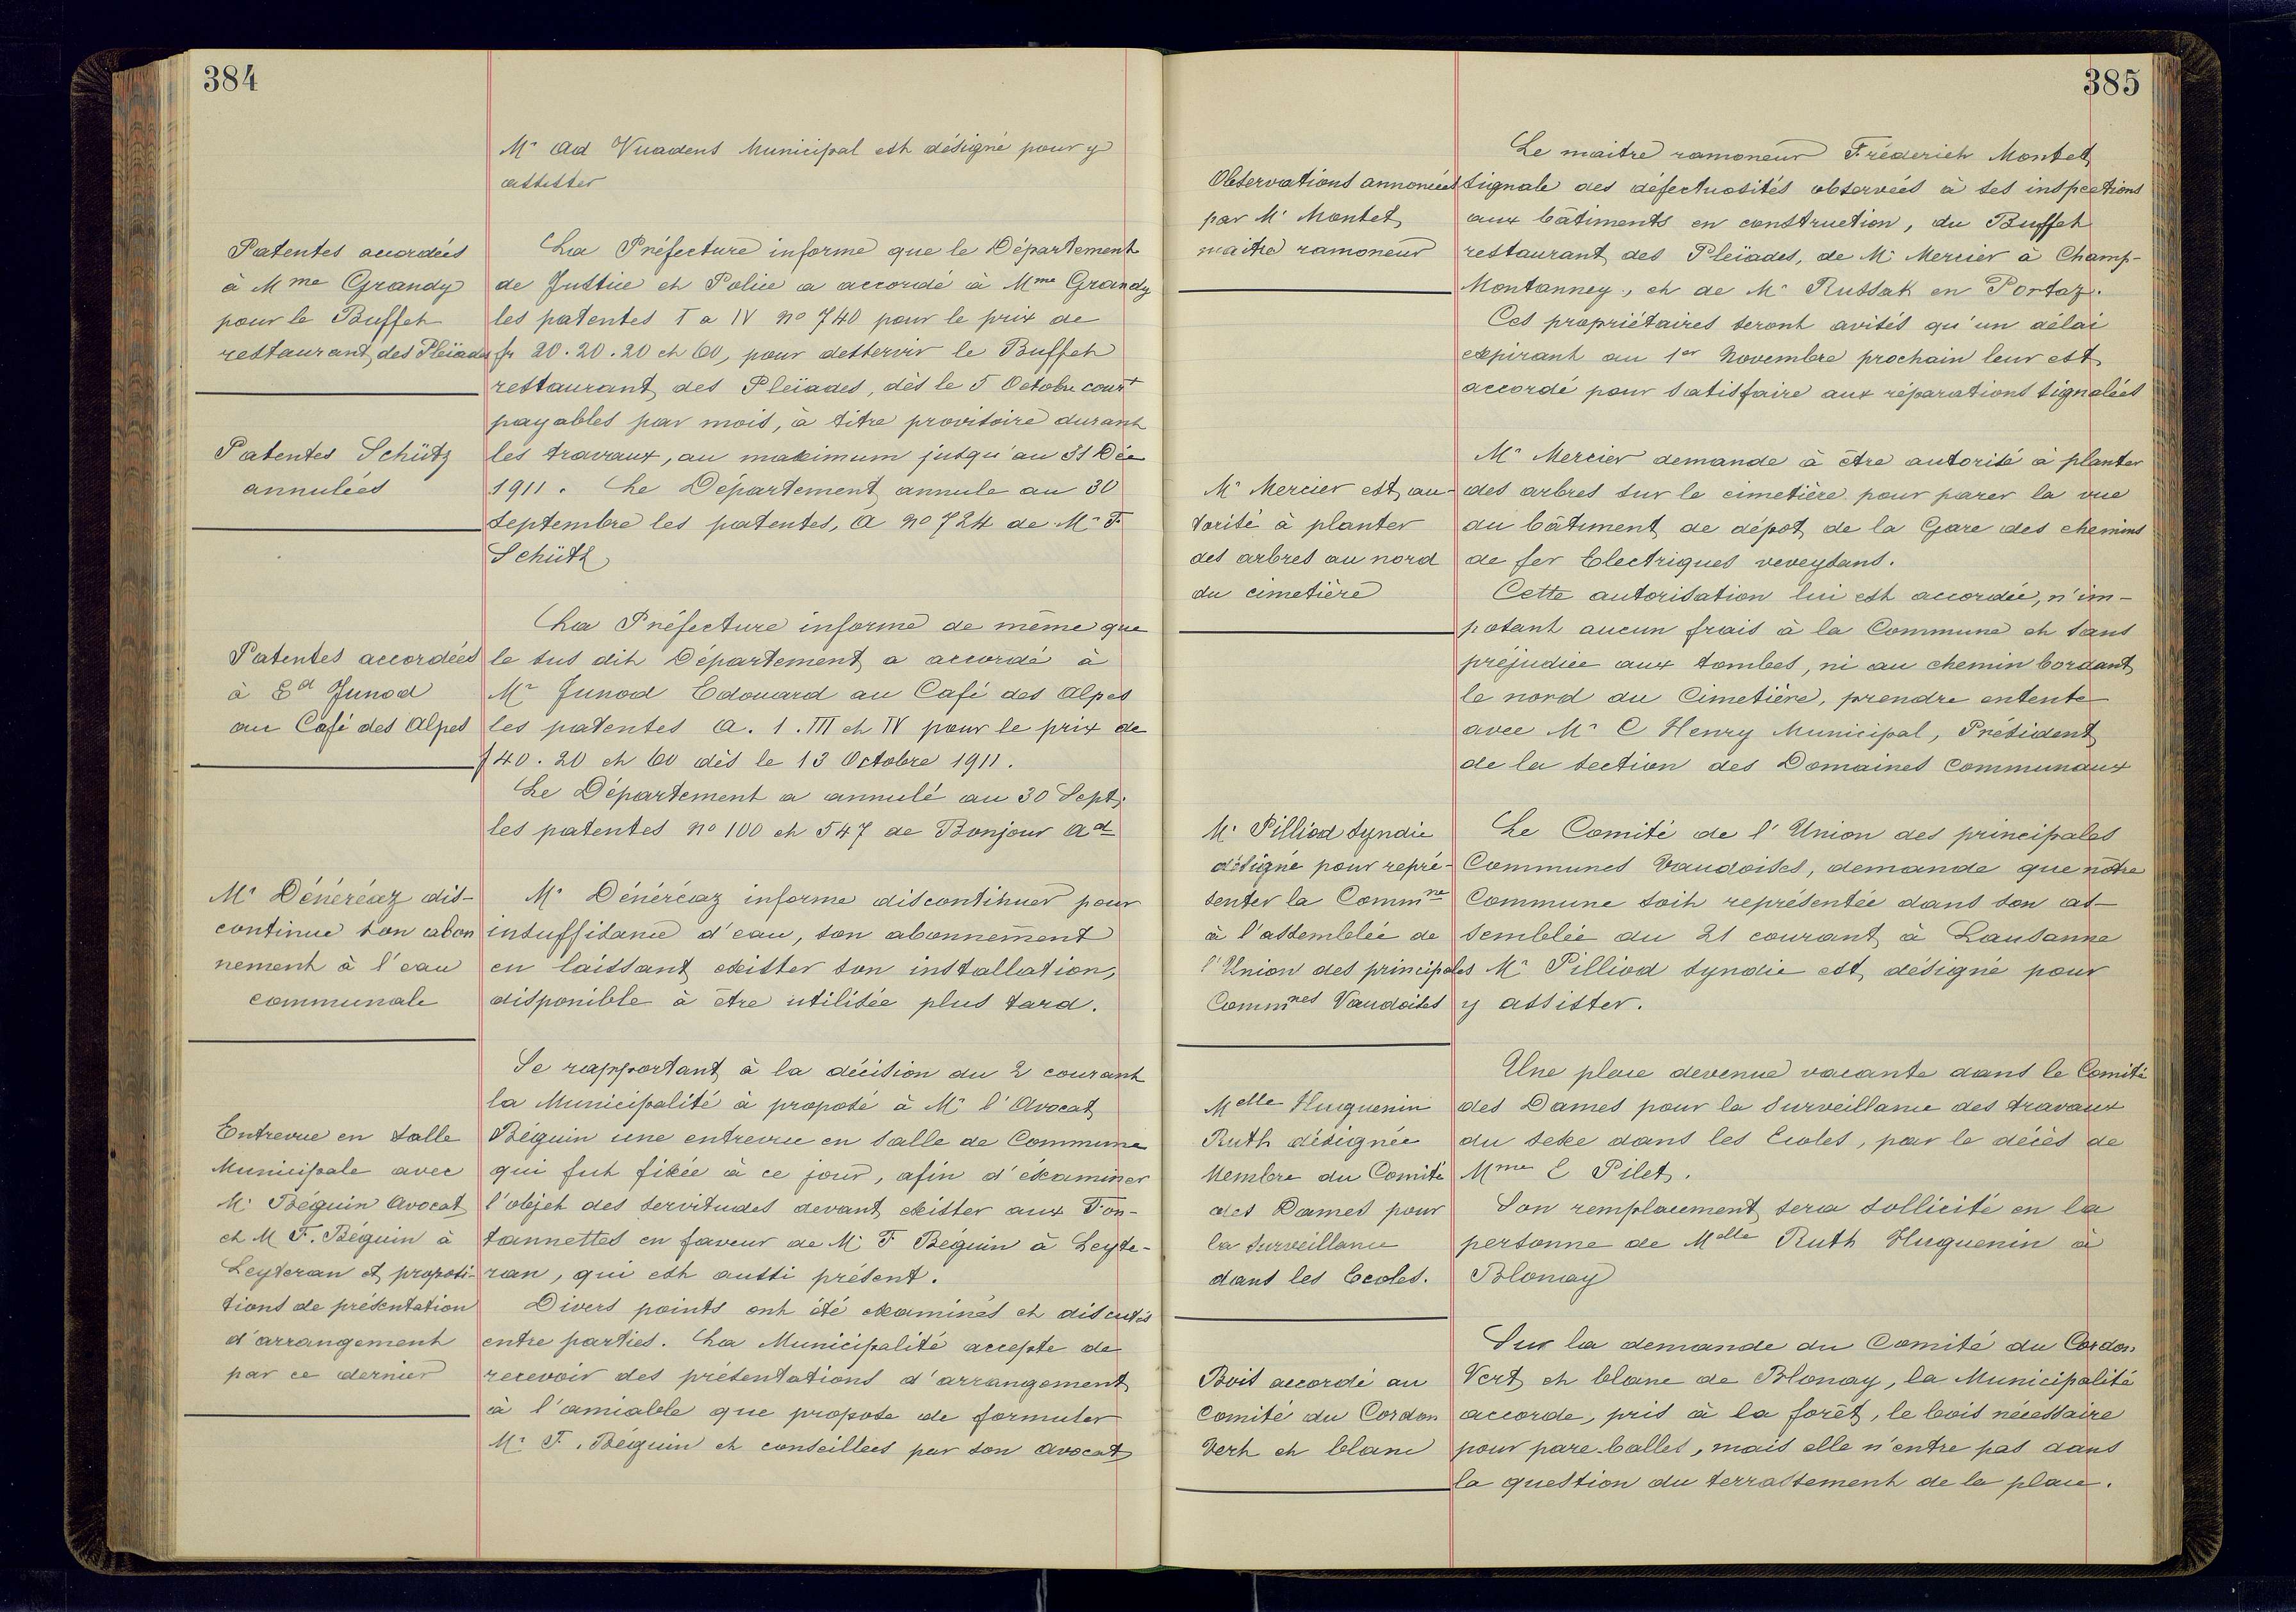 384
Mr Ad Vuadens Municipal est désigné pour y
assister
Patentes accordées
à Mme Grandy
pour le Buffet
restaurant des Pleïades
La Préfecture informe que le Département
de Justice et Police a accordé à Mme Grandy
les patentes I a IV no 740 pour le prix de
fr 20.20.20 et 60, pour desservir le Buffet
restaurant des Pleïades, dès le 5 Octobre court
payables par mois, à titre provisoire durant
les travaux, au maximum jusqu'au 31 Déc
Patentes Schütz
annulées
1911. Le Département annule au 30
Septembre les patentes, A no 724 de Mr F.
Schütz
Patentes accordées
à Ed Junod
au Café des Alpes
La Préfecture informe de même que
le sus dit Département a accordé à
Mr Junod Edouard au Café des Alpes
les patentes A. 1. III et IV pour le prix de
f 40. 20 et 60 dès le 13 Octobre 1911.
Le Département a annulé au 30 Sept.
les patentes no 100 et 547 de Bonjour Ad
Mr Dénéréaz dis-
continue son abon
nement à l'eau
communale
Mr Dénéréaz informe discontinuer pour
insuffisance d'eau, son abonnement
en laissant exister son installation,
disponible à être utilisée plus tard.
Entrevue en salle
Municipale avec
Mr Béguin Avocat
et M F. Béguin à
Leyteran et proposi-
tions de présentation
d'arrangement
par ce dernier
Se rapportant à la décision du 2 courant
la Municipalité à proposé à Mr l'Avocat
Béguin une entrevue en salle de Commune
qui fut fixée à ce jour, afin d'éxaminer
l'objet des servitudes devant exister aux Fon-
tannettes en faveur de Mr F Béguin à Leyte-
ran, qui est aussi présent.
Divers points ont été examinés et discutés
entre parties. La Municipalité accepte de
recevoir des présentations d'arrangement
à l'amiable que propose de formuler
Mr F. Béguin et conseillées par son Avocat
385
Observations annoncées
par Mr Montet
maitre ramoneur
Le maitre ramoneur Fréderich Montet
signale des défectuosités observées à ses inspections
aux bâtiments en construction, du Buffet
restaurant des Pleïades, de Mr Mercier à Champ-
Montanney, et de Mr Russak en Portaz.
Ces propriétaires seront avisés qu'un délai
expirant au 1er Novembre prochain leur est
accordé pour satisfaire aux réparations signalées
Mr Mercier est au-
torisé à planter
des arbres au nord
du cimetière
Mr Mercier demande à être autorisé à planter
des arbres sur le cimetière pour parer la vue
du bâtiment de dépot de la Gare des chemins
de fer Electriques veveysans.
Cette autorisation lui est accordée, n'im-
posant aucun frais à la Commune et sans
préjudice aux tombes, ni au chemin bordant
le nord du Cimetière, prendre entente
avec Mr C Henry Municipal, Président
de la section des Domaines Communaux
Mr Pilliod Syndic
désigné pour repré-
senter la Commne
à l'assemblée de
l'Union des principales
Commnes Vaudoises
Le Comité de l'Union des principales
Communes Vaudoises, demande que nôtre
Commune soit représentée dans son as-
semblée du 21 courant à Lausanne
Mr Pilliod Syndic est désigné pour
y assister.
Melle Huguenin
Ruth désignée
Membre du Comité
des Dames pour
la surveillance
dans les Ecoles.
Une place devenue vacante dans le Comité
des Dames pour la surveillance des travaux
du sexe dans les Ecoles, par le décès de
Mme E Pilet.
Son remplacement sera sollicité en la
personne de Melle Ruth Huguenin à
Blonay
Bois accordé au
Comité du Cordon
Vert et blanc
Sur la demande du Comité du Cordon
Vert et blanc de Blonay, la Municipalité
accorde, pris à la forêt, le bois nécessaire
pour pare-balles, mais elle n'entre pas dans
la question du terrassement de la place.